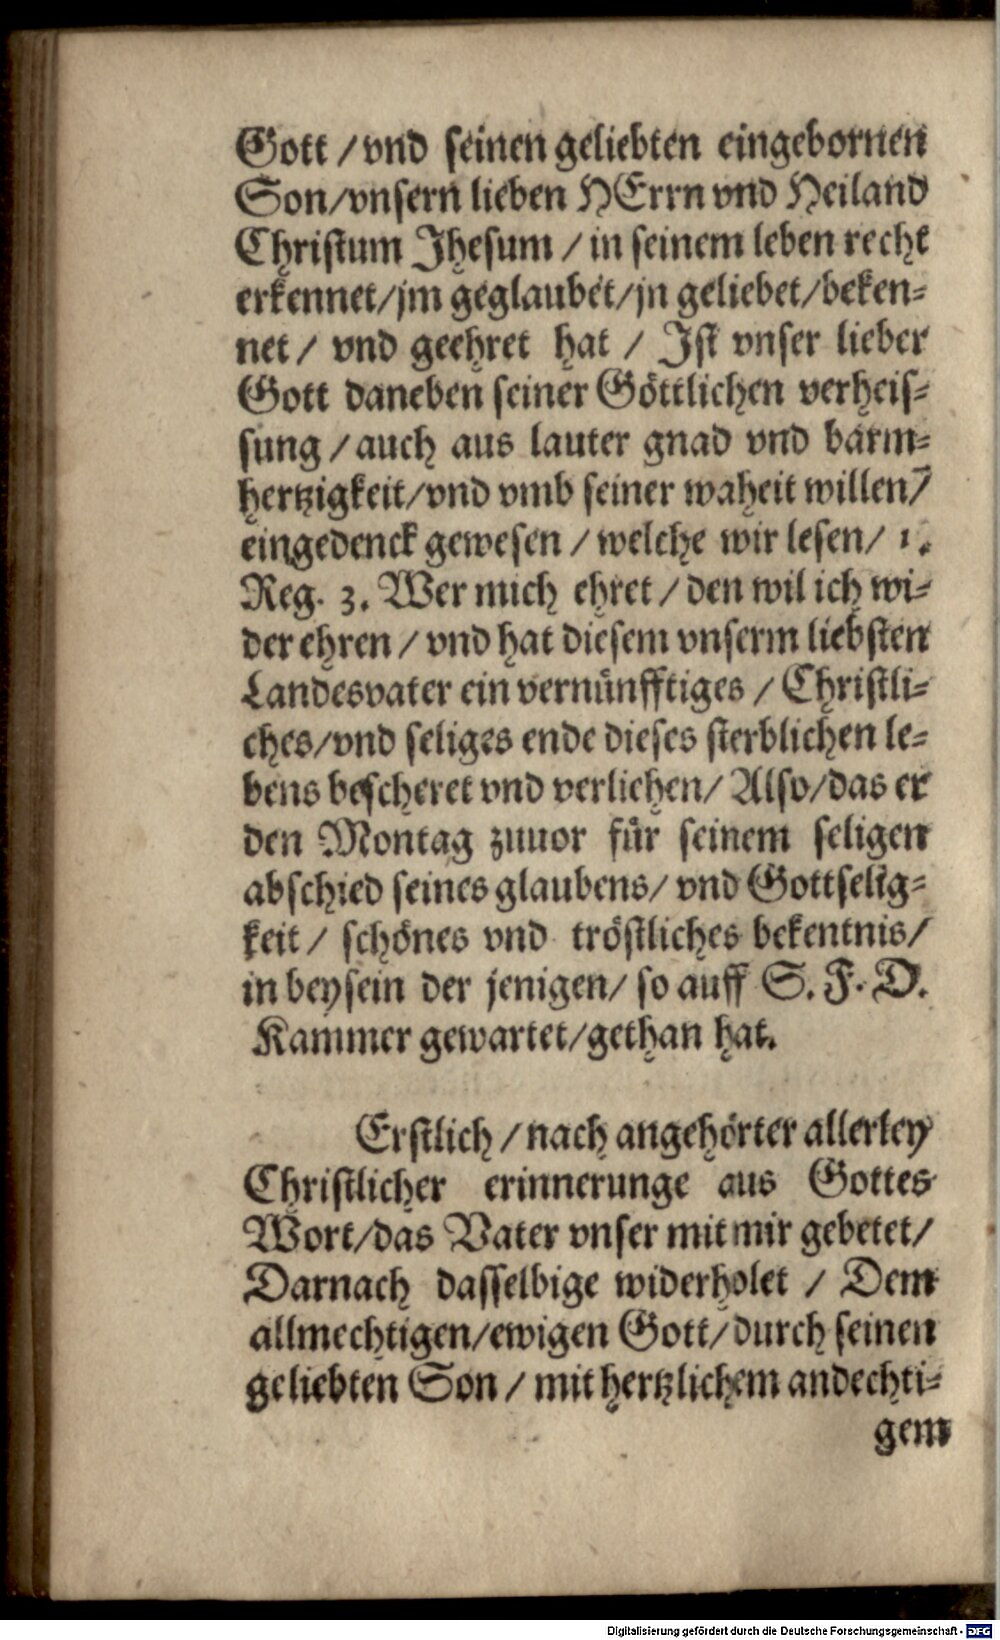 Gott / vnd seinen geliebten eingebornen
Son/vnsern lieben HErrn vnd Heiland
Christum Jhesum / in seinem leben recht
erkennet/jm geglaubet/jn geliebet/beken-
net / vnd geehret hat / Ist vnser lieber
Gott daneben seiner Göttlichen verheis-
sung / auch aus lauter gnad vnd barm-
hertzigkeit/vnd vmb seiner waheit willen/
eingedenck gewesen / welche wir lesen/ 1.
Reg. 3. Wer mich ehret / den wil ich wi-
der ehren / vnd hat diesem vnserm liebsten
Landesvater ein vernünfftiges / Christli-
ches/vnd seliges ende dieses sterblichen le-
bens bescheret vnd verliehen/ Also/das er
den Montag zuuor für seinem seligen
abschied seines glaubens/ vnd Gottselig-
keit / schönes vnd tröstliches bekentnis/
in beysein der jenigen/ so auff S. F. D.
Kammer gewartet/gethan hat.
Erstlich / nach angehörter allerley
Christlicher erinnerunge aus Gottes
Wort/das Vater vnser mit mir gebetet/
Darnach dasselbige widerholet / Dem
allmechtigen/ewigen Gott/durch seinen
geliebten Son / mit hertzlichem andechti-
gem
Digitalisierung gefördert durch die Deutsche Forschungsgemeinschaft - DFG